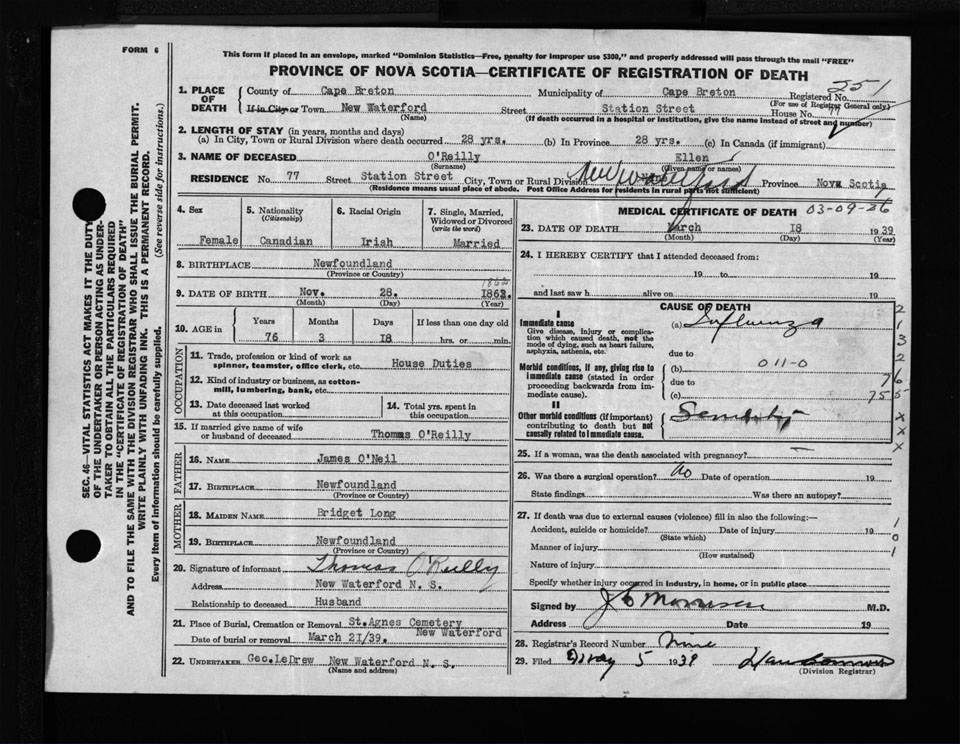 FORM 6
This form if placed in an envelope, marked "Dominion Statistics—Free, penalty for improper use $300," and properly addressed will pass through the mail "FREE"
PROVINCE OF NOVA SCOTIA—CERTIFICATE OF REGISTRATION OF DEATH
251
1. PLACE OF DEATH
County of Cape Breton Municipality of Cape Breton Registered No.
(For use of Registrar General only)
If in City or Town New Waterford Street Station Street House No. 77
(Name) (If death occurred in a hospital or institution, give the name instead of street and number)
2. LENGTH OF STAY (in years, months and days)
(a) In City, Town or Rural Division where death occurred 28 yrs. (b) In Province 28 yrs. (c) In Canada (if immigrant)
3. NAME OF DECEASED O'Reilly Ellen
(Surname) (Given name or names)
RESIDENCE No. 77 Street Station Street City, Town or Rural Division New Waterford Province Nova Scotia
(Residence means usual place of abode. Post Office Address for residents in rural parts not sufficient)
4. Sex
Female
5. Nationality
(Citizenship)
Canadian
6. Racial Origin
Irish
7. Single, Married, Widowed or Divorced
(write the word)
Married
8. BIRTHPLACE Newfoundland
(Province or Country)
1862
9. DATE OF BIRTH Nov. 28. 1863.
(Month) (Day) (Year)
10. AGE in
Years Months Days If less than one day old
76 3 18 hrs. or min.
OCCUPATION
11. Trade, profession or kind of work as spinner, teamster, office clerk, etc. House Duties
12. Kind of industry or business, as cotton-mill, lumbering, bank, etc.
13. Date deceased last worked at this occupation
14. Total yrs. spent in this occupation
15. If married give name of wife or husband of deceased Thomas O'Reilly
FATHER
16. NAME James O'Neil
17. BIRTHPLACE Newfoundland
(Province or Country)
MOTHER
18. MAIDEN NAME Bridget Long
19. BIRTHPLACE Newfoundland
(Province or Country)
20. Signature of informant Thomas O'Reilly
Address New Waterford N. S.
Relationship to deceased Husband
21. Place of Burial, Cremation or Removal St.Agnes Cemetery
New Waterford
Date of burial or removal March 21/39.
22. UNDERTAKER Geo.LeDrew New Waterford N. S.
(Name and address)
MEDICAL CERTIFICATE OF DEATH 03-09-26
23. DATE OF DEATH March 18 1939
(Month) (Day) (Year)
24. I HEREBY CERTIFY that I attended deceased from:
19 to 19
and last saw h alive on 19
CAUSE OF DEATH
I
Immediate cause
Give disease, injury or complication which caused death, not the mode of dying, such as heart failure, asphyxia, asthenia, etc.
(a) Influenza
due to
Morbid conditions, if any, giving rise to immediate cause (stated in order proceeding backwards from immediate cause).
(b) 011-0
due to 76
(c) 75
II
Other morbid conditions (if important) contributing to death but not causally related to immediate cause.
Senility
25. If a woman, was the death associated with pregnancy?
26. Was there a surgical operation? no Date of operation 19
State findings Was there an autopsy?
27. If death was due to external causes (violence) fill in also the following:—
Accident, suicide or homicide? Date of injury 19
(State which)
Manner of injury
(How sustained)
Nature of injury
Specify whether injury occurred in industry, in home, or in public place
Signed by M.D.
Address Date 19
28. Registrar's Record Number Nine
29. Filed May 5 1939
(Division Registrar)
SEC. 46—VITAL STATISTICS ACT MAKES IT THE DUTY
OF THE UNDERTAKER OR PERSON ACTING AS UNDER-
TAKER TO OBTAIN ALL THE PARTICULARS REQUIRED
IN THE "CERTIFICATE OF REGISTRATION OF DEATH"
AND TO FILE THE SAME WITH THE DIVISION REGISTRAR WHO SHALL ISSUE THE BURIAL PERMIT.
WRITE PLAINLY WITH UNFADING INK. THIS IS A PERMANENT RECORD.
Every item of information should be carefully supplied. (See reverse side for instructions.)